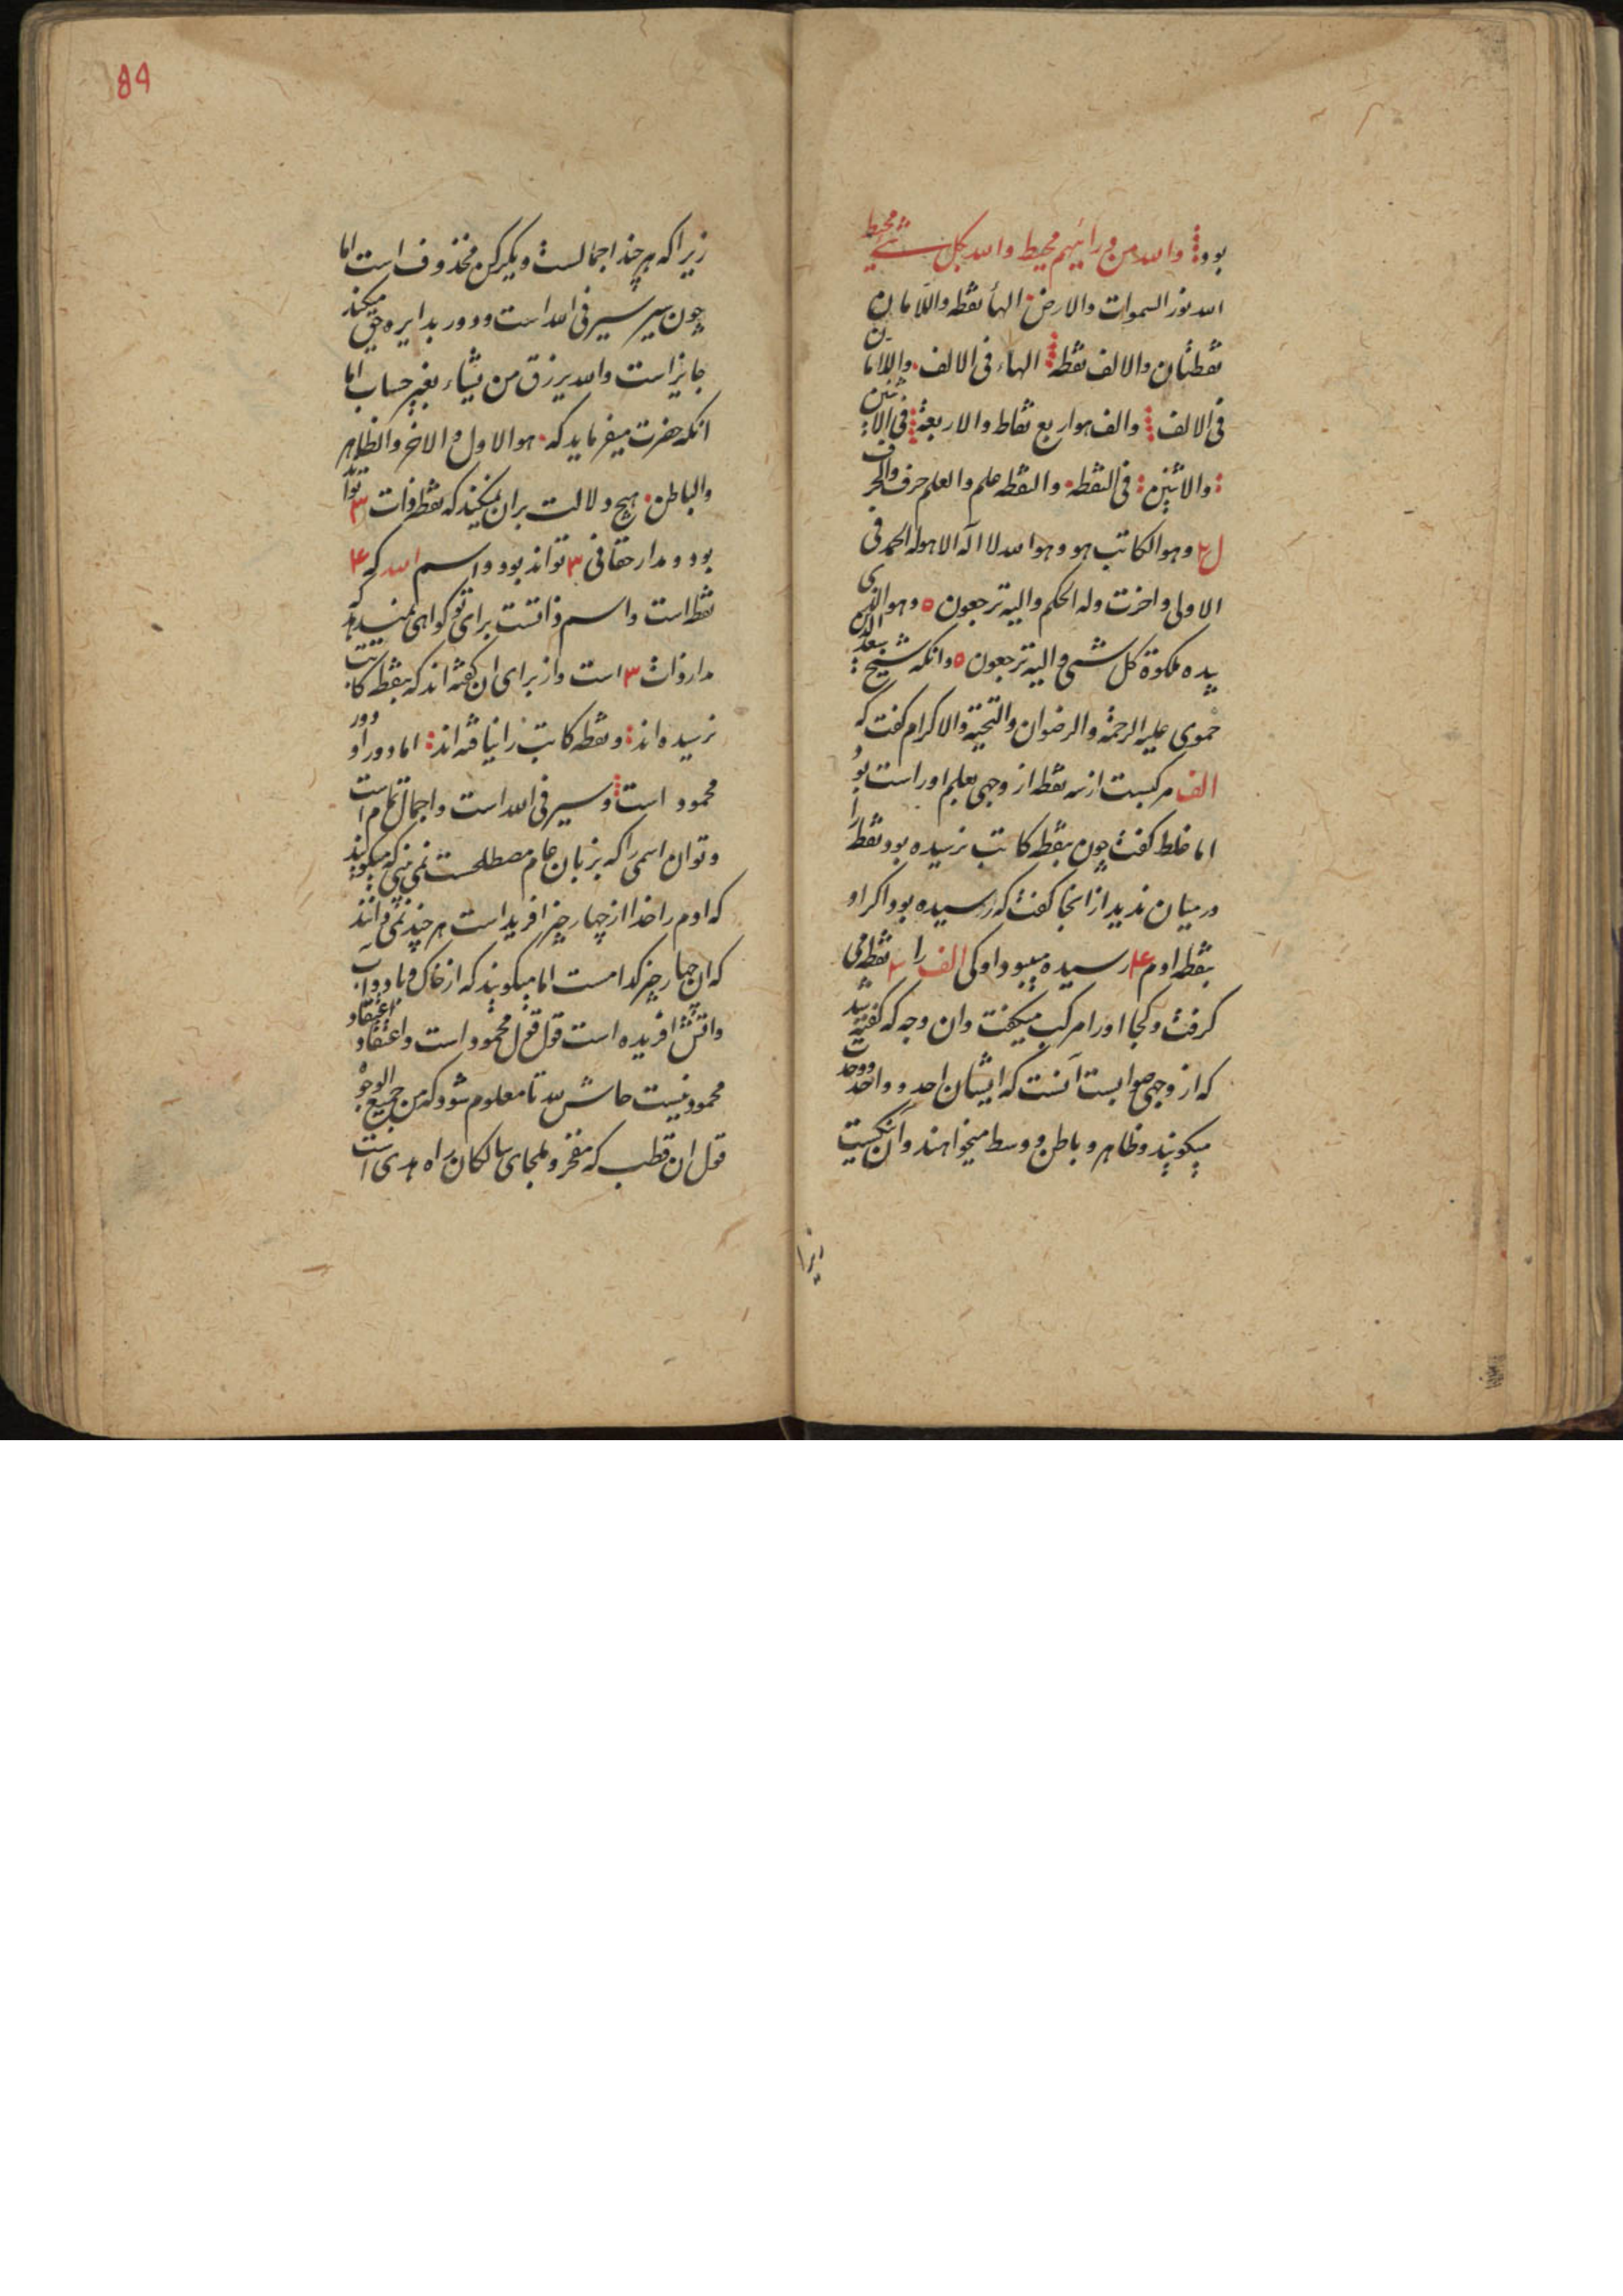 بود و الله من ورائهم محیط والله بکل شیئ محیط
الله نور السموات والارض الهأ نقطه واللامان
نقطتان والالف نقطه الهاء فی الالف واللامان
فی الالف والف هو اربع نقاط والاربعة فی الاثنین
والاثنین فی النقطه والنقطه علم والعلم حرف والحرف
ل وهو الکاتب هو وهو الله لا اله الا هو له الحمد فی
الاولی واخرت وله الحکم والیه ترجعون ٥ وهو الذی
بیده ملکوة کل شی والیه ترجعون ٥ وانکه شیخ سعد الدین
حموی علیه الرحمة والرضوان والتحیة والاکرام کفت که
الف مرکبست از سه نقطه از وجهی بعلم او راست بود
اما غلط کفت چون بنقطه کاتب نرسیده بود نقطه را
در میان ندید از انجا کفت که رسیده بود اکر او
بنقطه ادم ۴ رسیده میبود او کی الف را نقطه می
کرفت و کجا او را مرکب میکفت وان وجه که کفته شد
که از وجهی صوابست آنست که ایشان احد و واحد و وحدت
میکویند و ظاهر و باطن و وسط میخواهند وان نکیست
زیرا
89
زیرا که هر چند اجمالست و یکرکن مخذوف است اما
چون سیر سیر فی الله است و دور بدایره حق میکند
جایز است والله یرزق من یشاء بغیر حساب اما
انکه حضرت میفرماید که هو الاول والاخر والظاهر
والباطن هیچ دلالت بران نمیکند که نقطه ذات ۳ تواند
بود و مدار حقانی ۳ تواند بود واسم الله که ۴
نقطه است واسم ذاتست برای تو کواهی نمیدهد که
مدار ذات ۳ است واز برای ان کفته اند که بنقطه کاتبیت
نرسیده اند و نقطه کاتب را نیافته اند اما دور او دور
محمود است و سیر فی الله است واجمال تمام است
و توان اسمی را که بزبان عام مصطلحست نمی بینی که میکویند
که ادم را خدا از چهار چیز افرید است هر چند نمی دانند
که ان چهار چیز کدامست اما میکویند که از خاک و باد و آب
واتش افریده است قول قول محمود است واعتقاد اعتقاد
محمود نیست حاش لله تا معلوم شود که من جمیع الوجوه
قول ان قطب که مفخر و ملجای سالکان راه هدی است